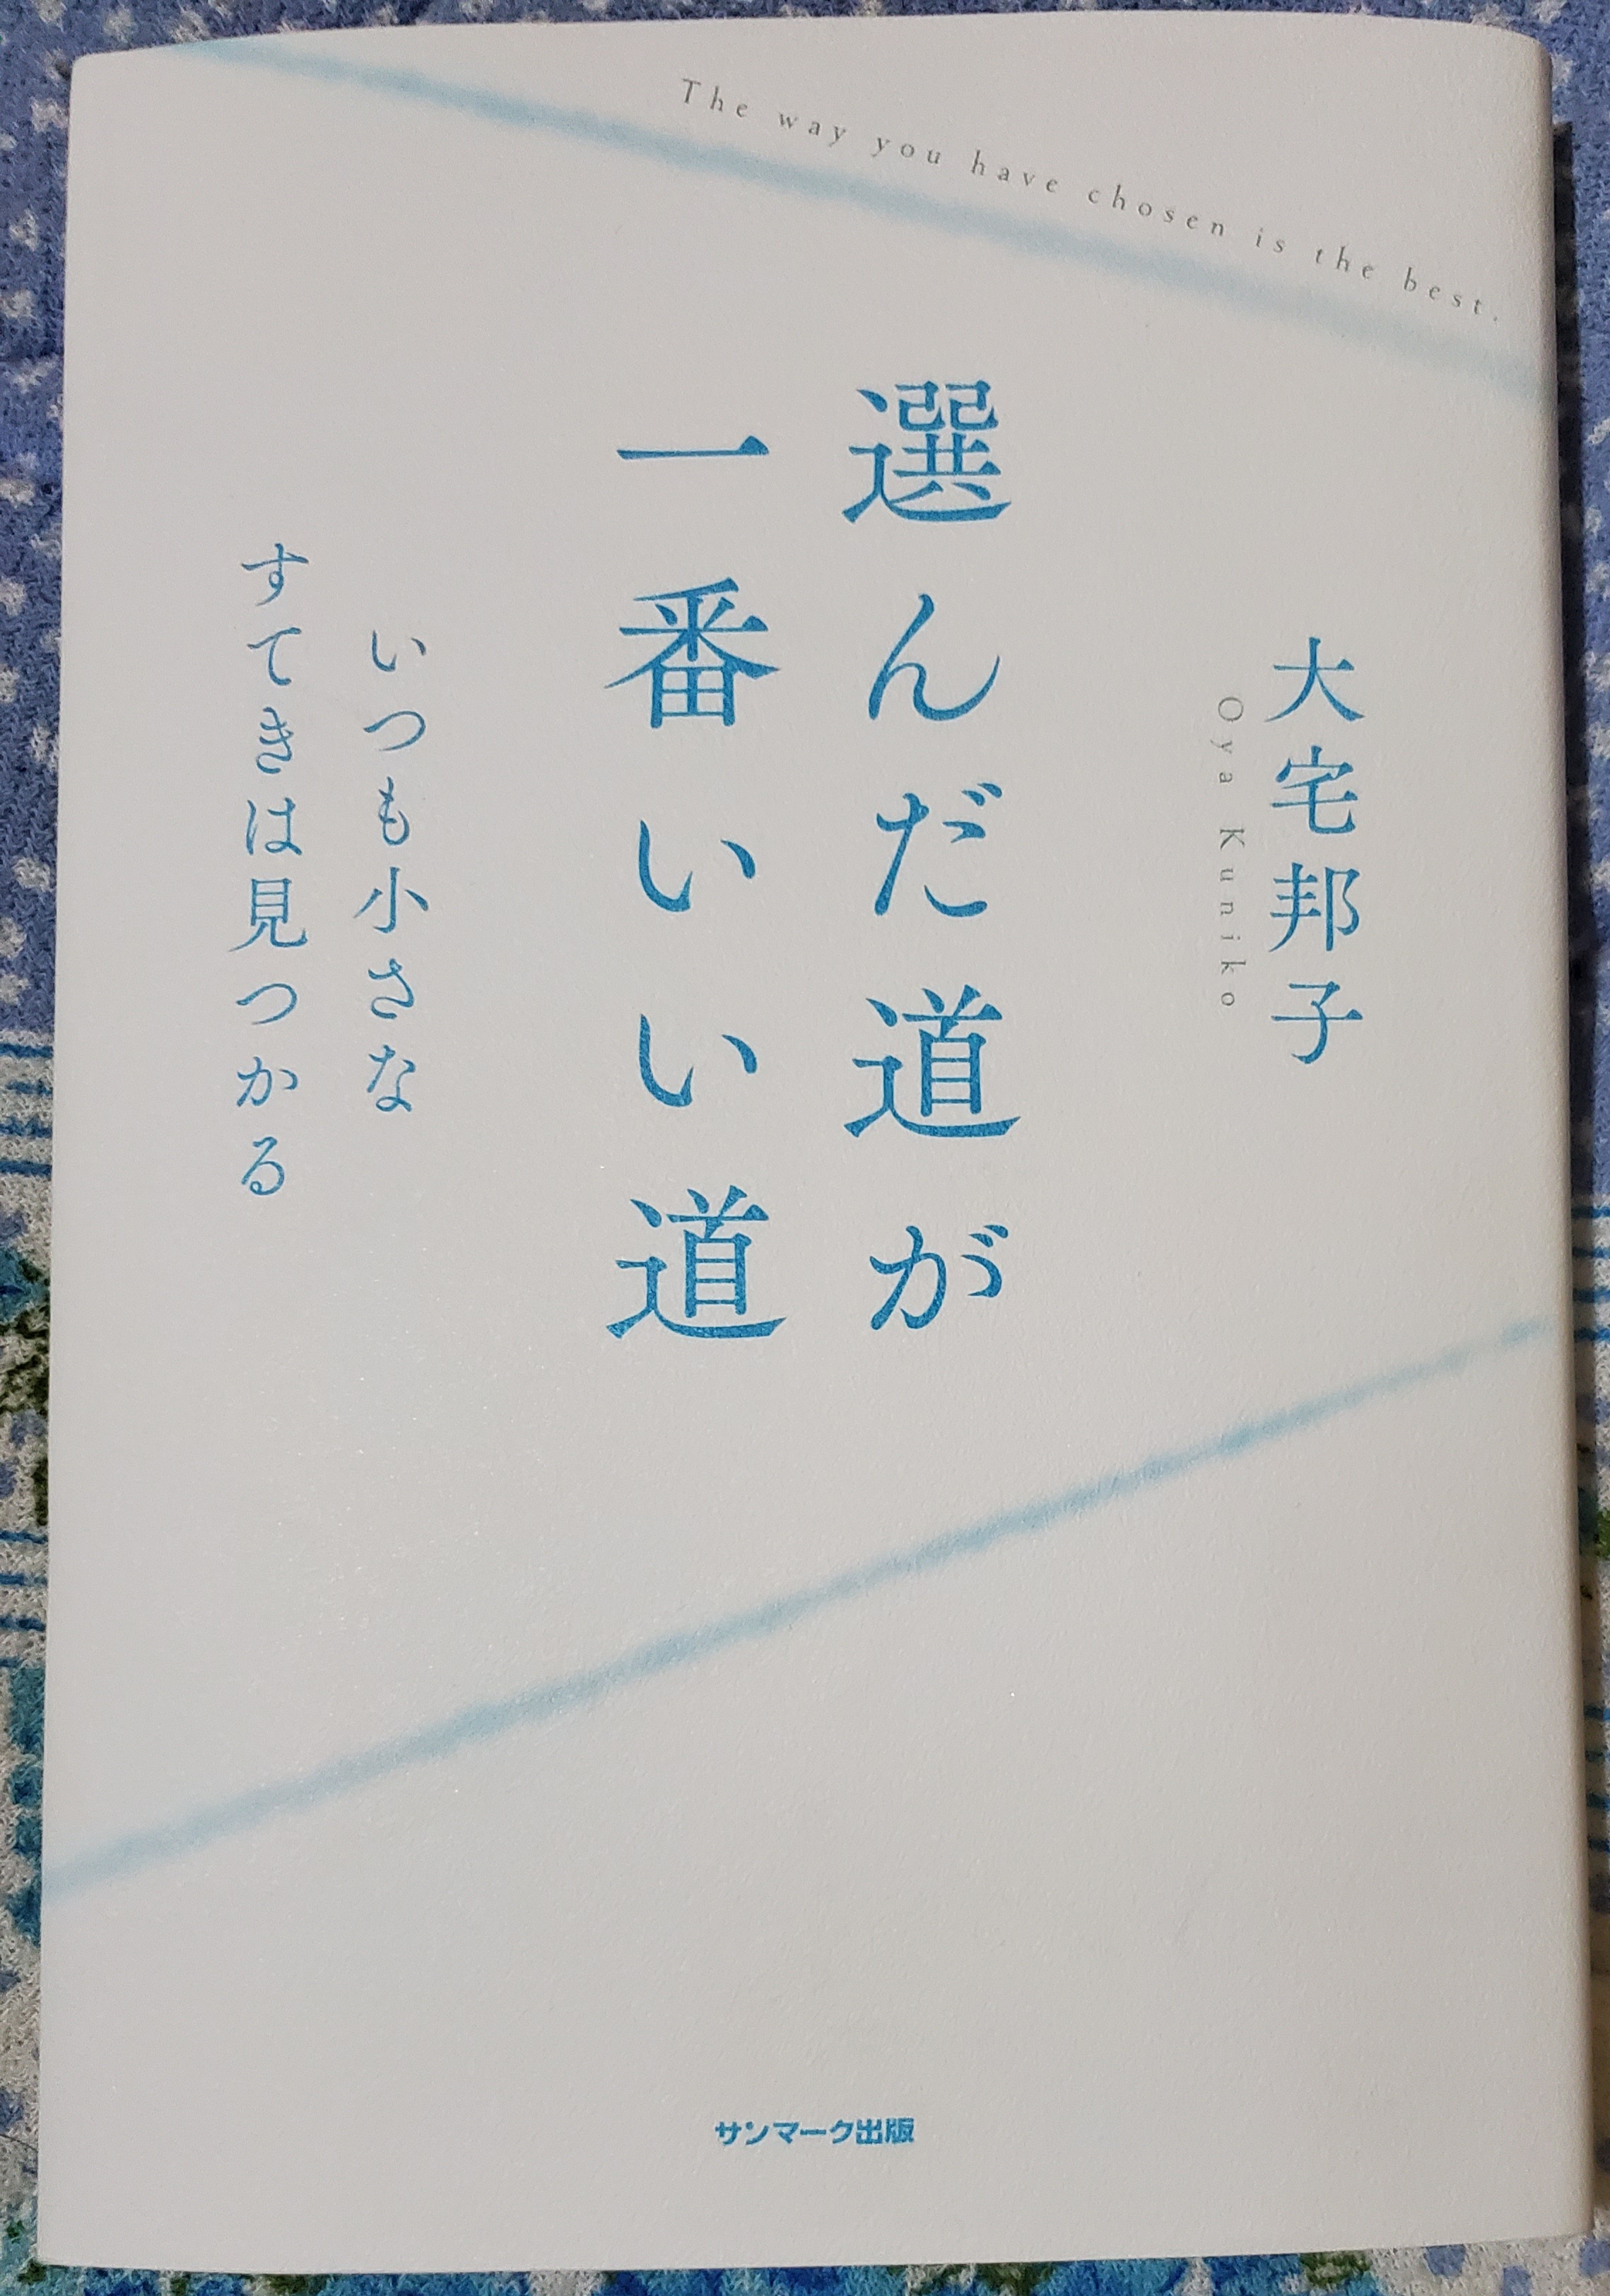 The way you have chosen is the best.
大宅邦子
Oya Kuniko
選んだ道が
一番いい道
いつも小さな
すてきは見つかる
サンマーク出版